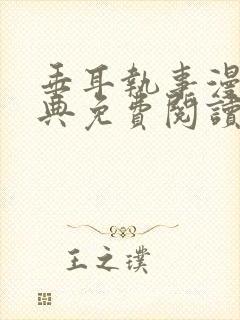 垂耳執事漫
典免費閱讀
王之璞